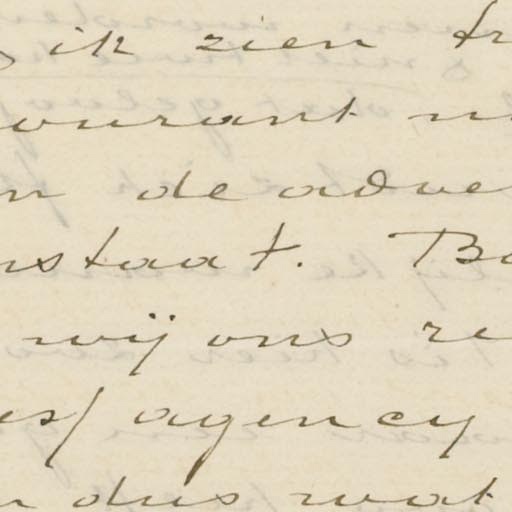 ik zien
courant
n de adve
nstaat. B
wij ons re
es/ agency
dus wat